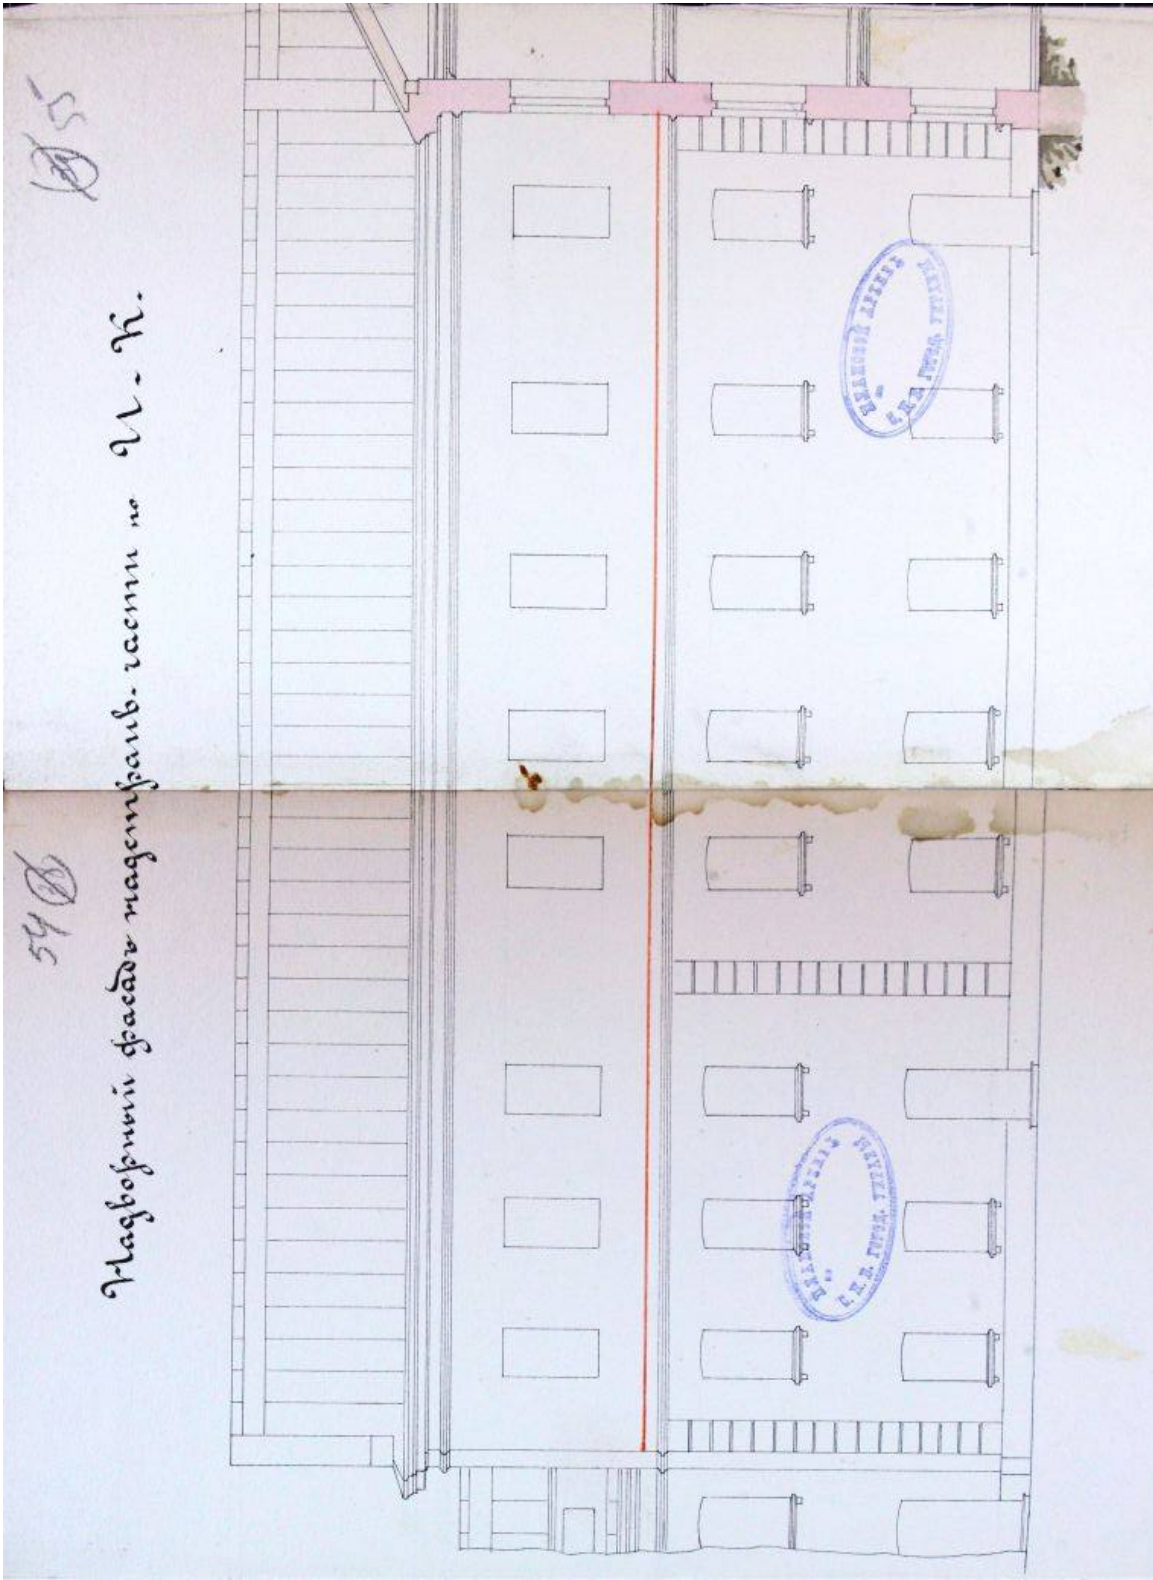 Надворный фасадъ надстраив. части по И - К.
55
54
ПЛАНОВОЙ АРХИВЪ
С.П.Б. ГОРОД. УПРАВЫ
ПЛАНОВОЙ АРХИВЪ
С.П.Б. ГОРОД. УПРАВЫ